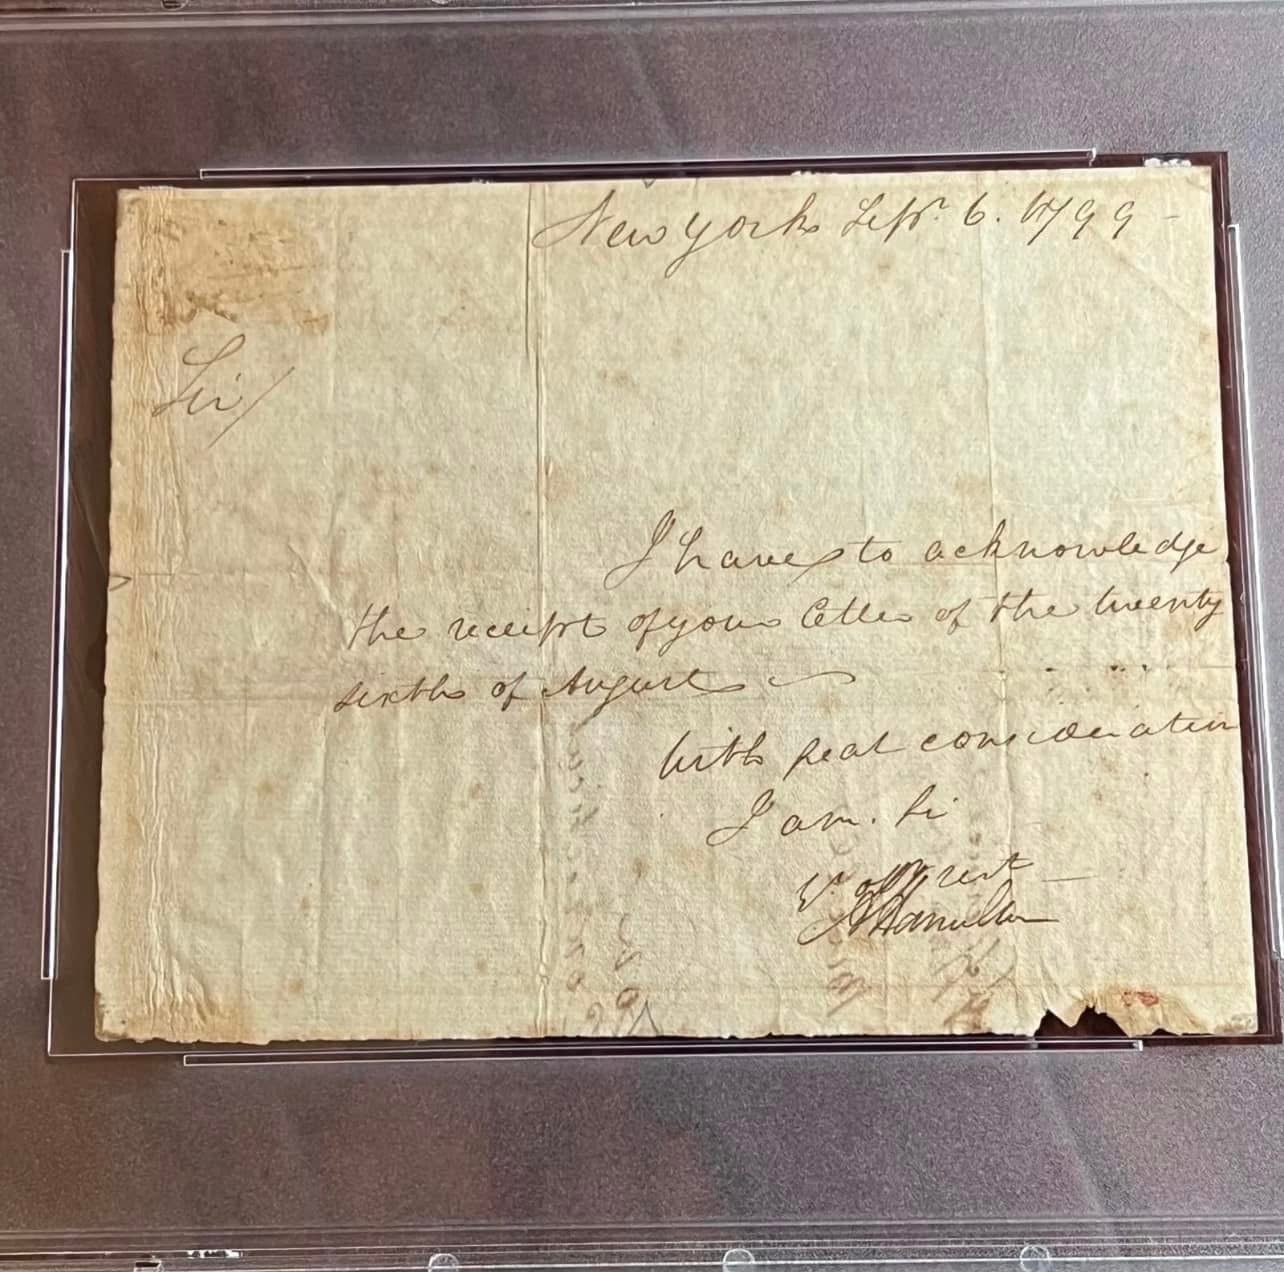 New York Sepr. 6. 1799 -
Sir/
I have to acknowledge
the receipt of your letter of the twenty
sixth of August
With great consideration
I am. Sir
Yr. obt servt
A Hamilton